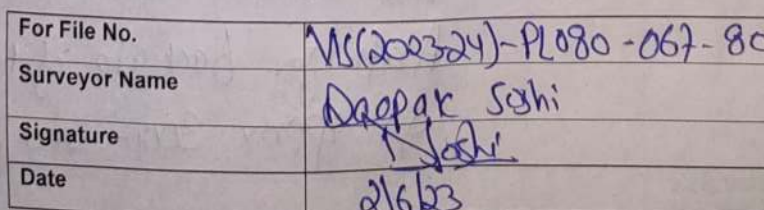 For File No. VIS(2023-24)-PL080-067-80
Surveyor Name Deepak Joshi
Signature Joshi
Date 2/6/23